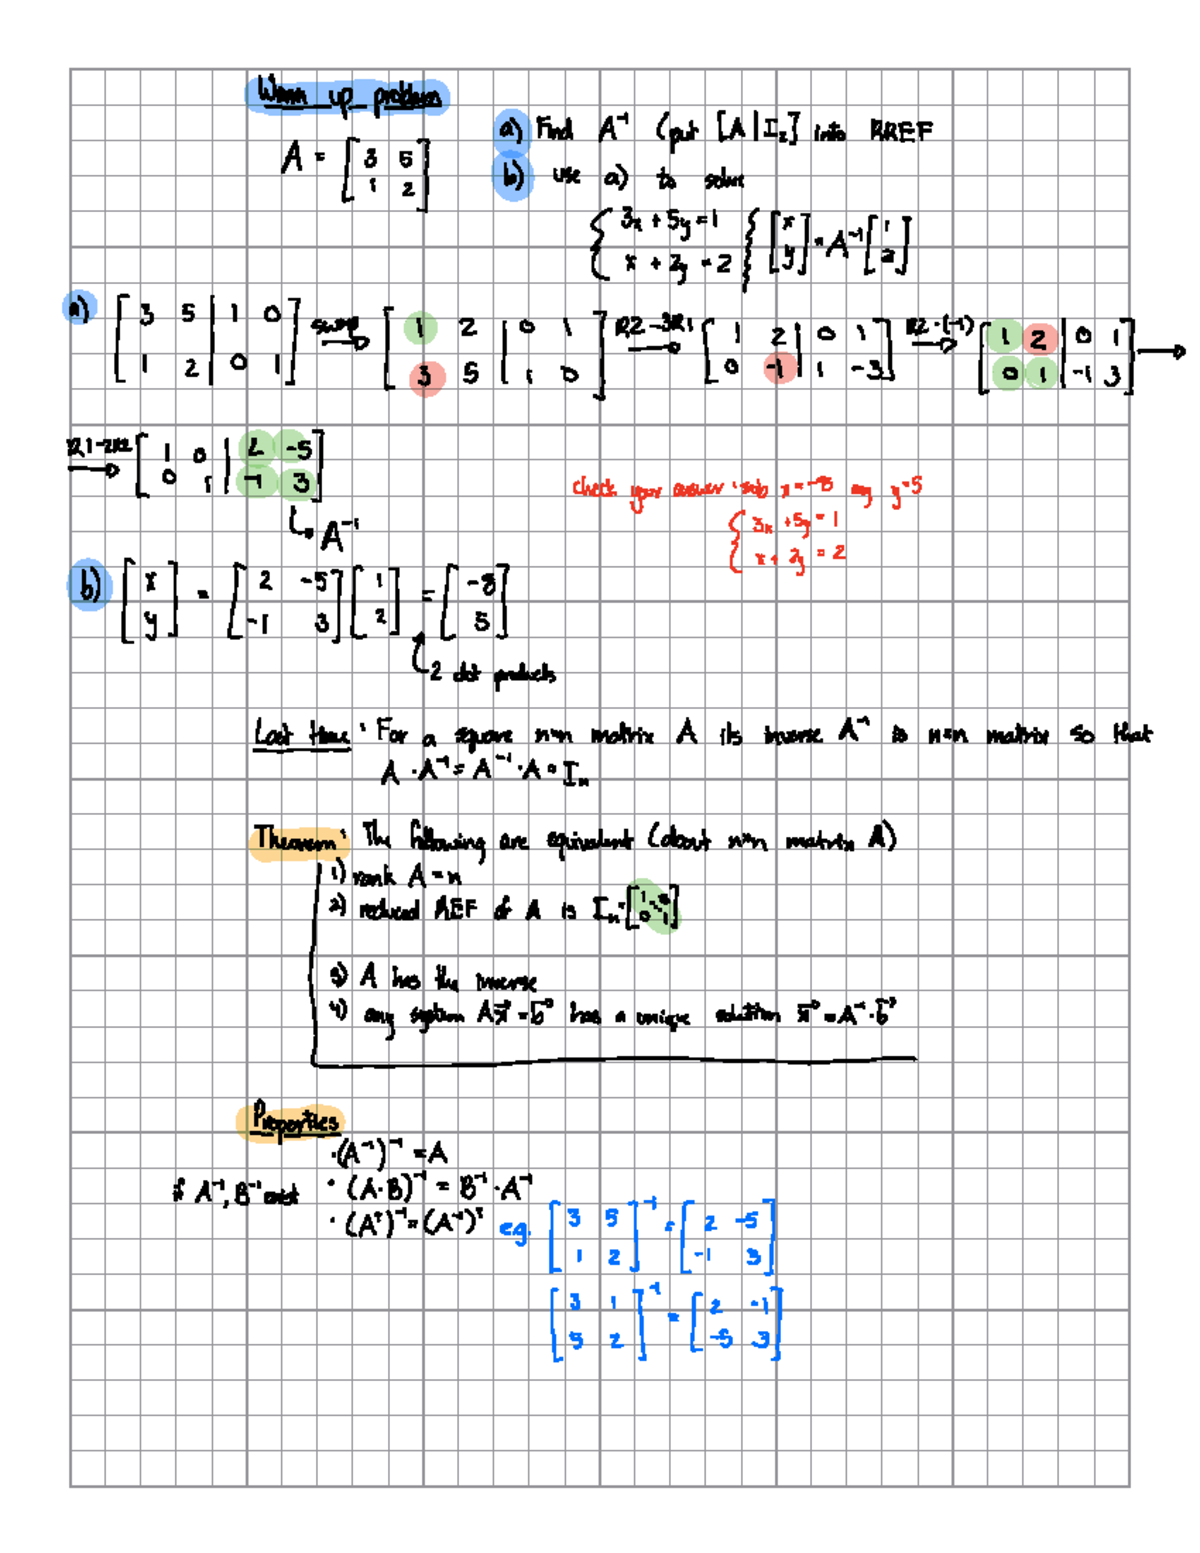 Warm up problem
A = [3 5; 1 2]
a) Find A⁻¹ (put [A | I₂] into RREF
b) use a) to solve
{3x + 5y = 1
x + 2y = 2 { [x; y] = A⁻¹ [1; 2]
a) [3 5 | 1 0; 1 2 | 0 1] swap → [1 2 | 0 1; 3 5 | 1 0] R2 - 3R1 → [1 2 | 0 1; 0 -1 | 1 -3] R2 · (-1) → [1 2 | 0 1; 0 1 | -1 3] →
R1 - 2R2 → [1 0 | 2 -5; 0 1 | -1 3]
↳ A⁻¹
check your answer : sub x = -8 any y = 5
{3x + 5y = 1
x + 2y = 2
b) [x; y] = [2 -5; -1 3] [1; 2] = [-8; 5]
2 dot products
Last time : For a square n×n matrix A its inverse A⁻¹ is n×n matrix so that
A · A⁻¹ = A⁻¹ · A = Iₙ
Theorem : The following are equivalent (about n×n matrix A)
1) rank A = n
2) reduced REF of A is Iₙ = [1 0; 0 1]
3) A has the inverse
4) any system Ax⃗ = b⃗ has a unique solution x⃗ = A⁻¹ · b⃗
Properties
· (A⁻¹)⁻¹ = A
if A⁻¹, B⁻¹ exist · (A·B)⁻¹ = B⁻¹ · A⁻¹
· (Aᵀ)⁻¹ = (A⁻¹)ᵀ e.g. [3 5; 1 2]⁻¹ = [2 -5; -1 3]
[3 1; 5 2]⁻¹ = [2 -1; -5 3]